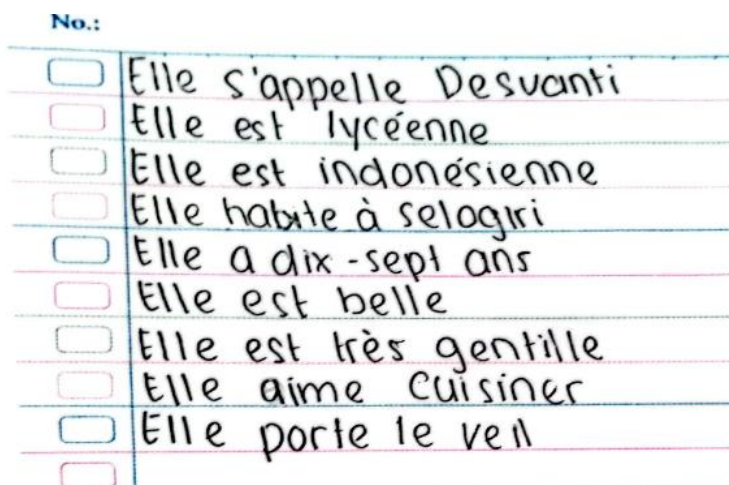 No.:
Elle s'appelle Desvanti
Elle est lycéenne
Elle est indonésienne
Elle habite à selogiri
Elle a dix-sept ans
Elle est belle
Elle est très gentille
Elle aime cuisiner
Elle porte le veil